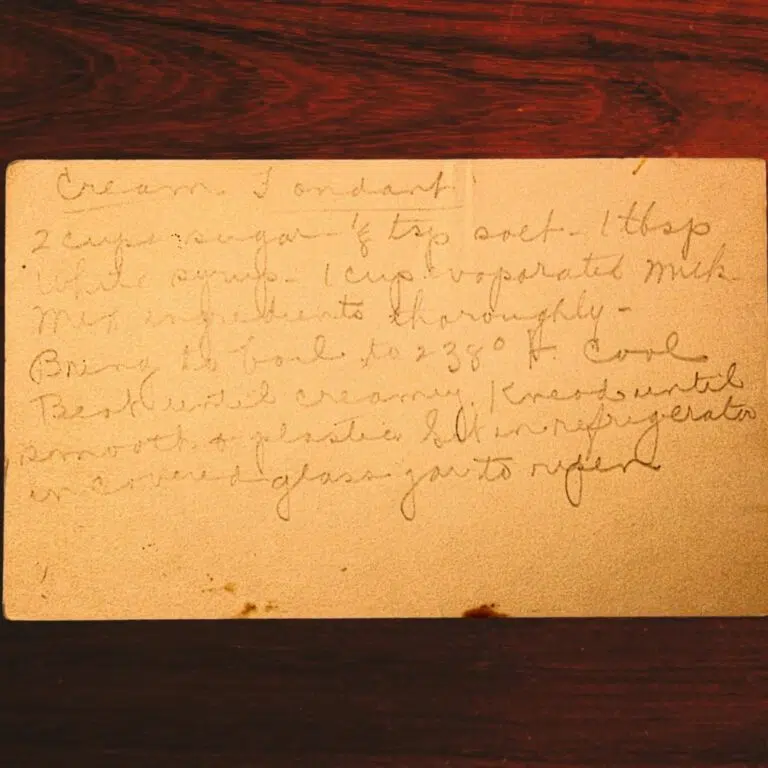 Cream Fondant
2 cups sugar - ⅛ tsp salt - 1 tbsp
White syrup - 1 cup evaporated milk
Mix ingredients thoroughly -
Bring to boil to 238° F. Cool
Beat until creamy. Knead until
smooth & plastic Set in refrigerator
in covered glass jar to ripen